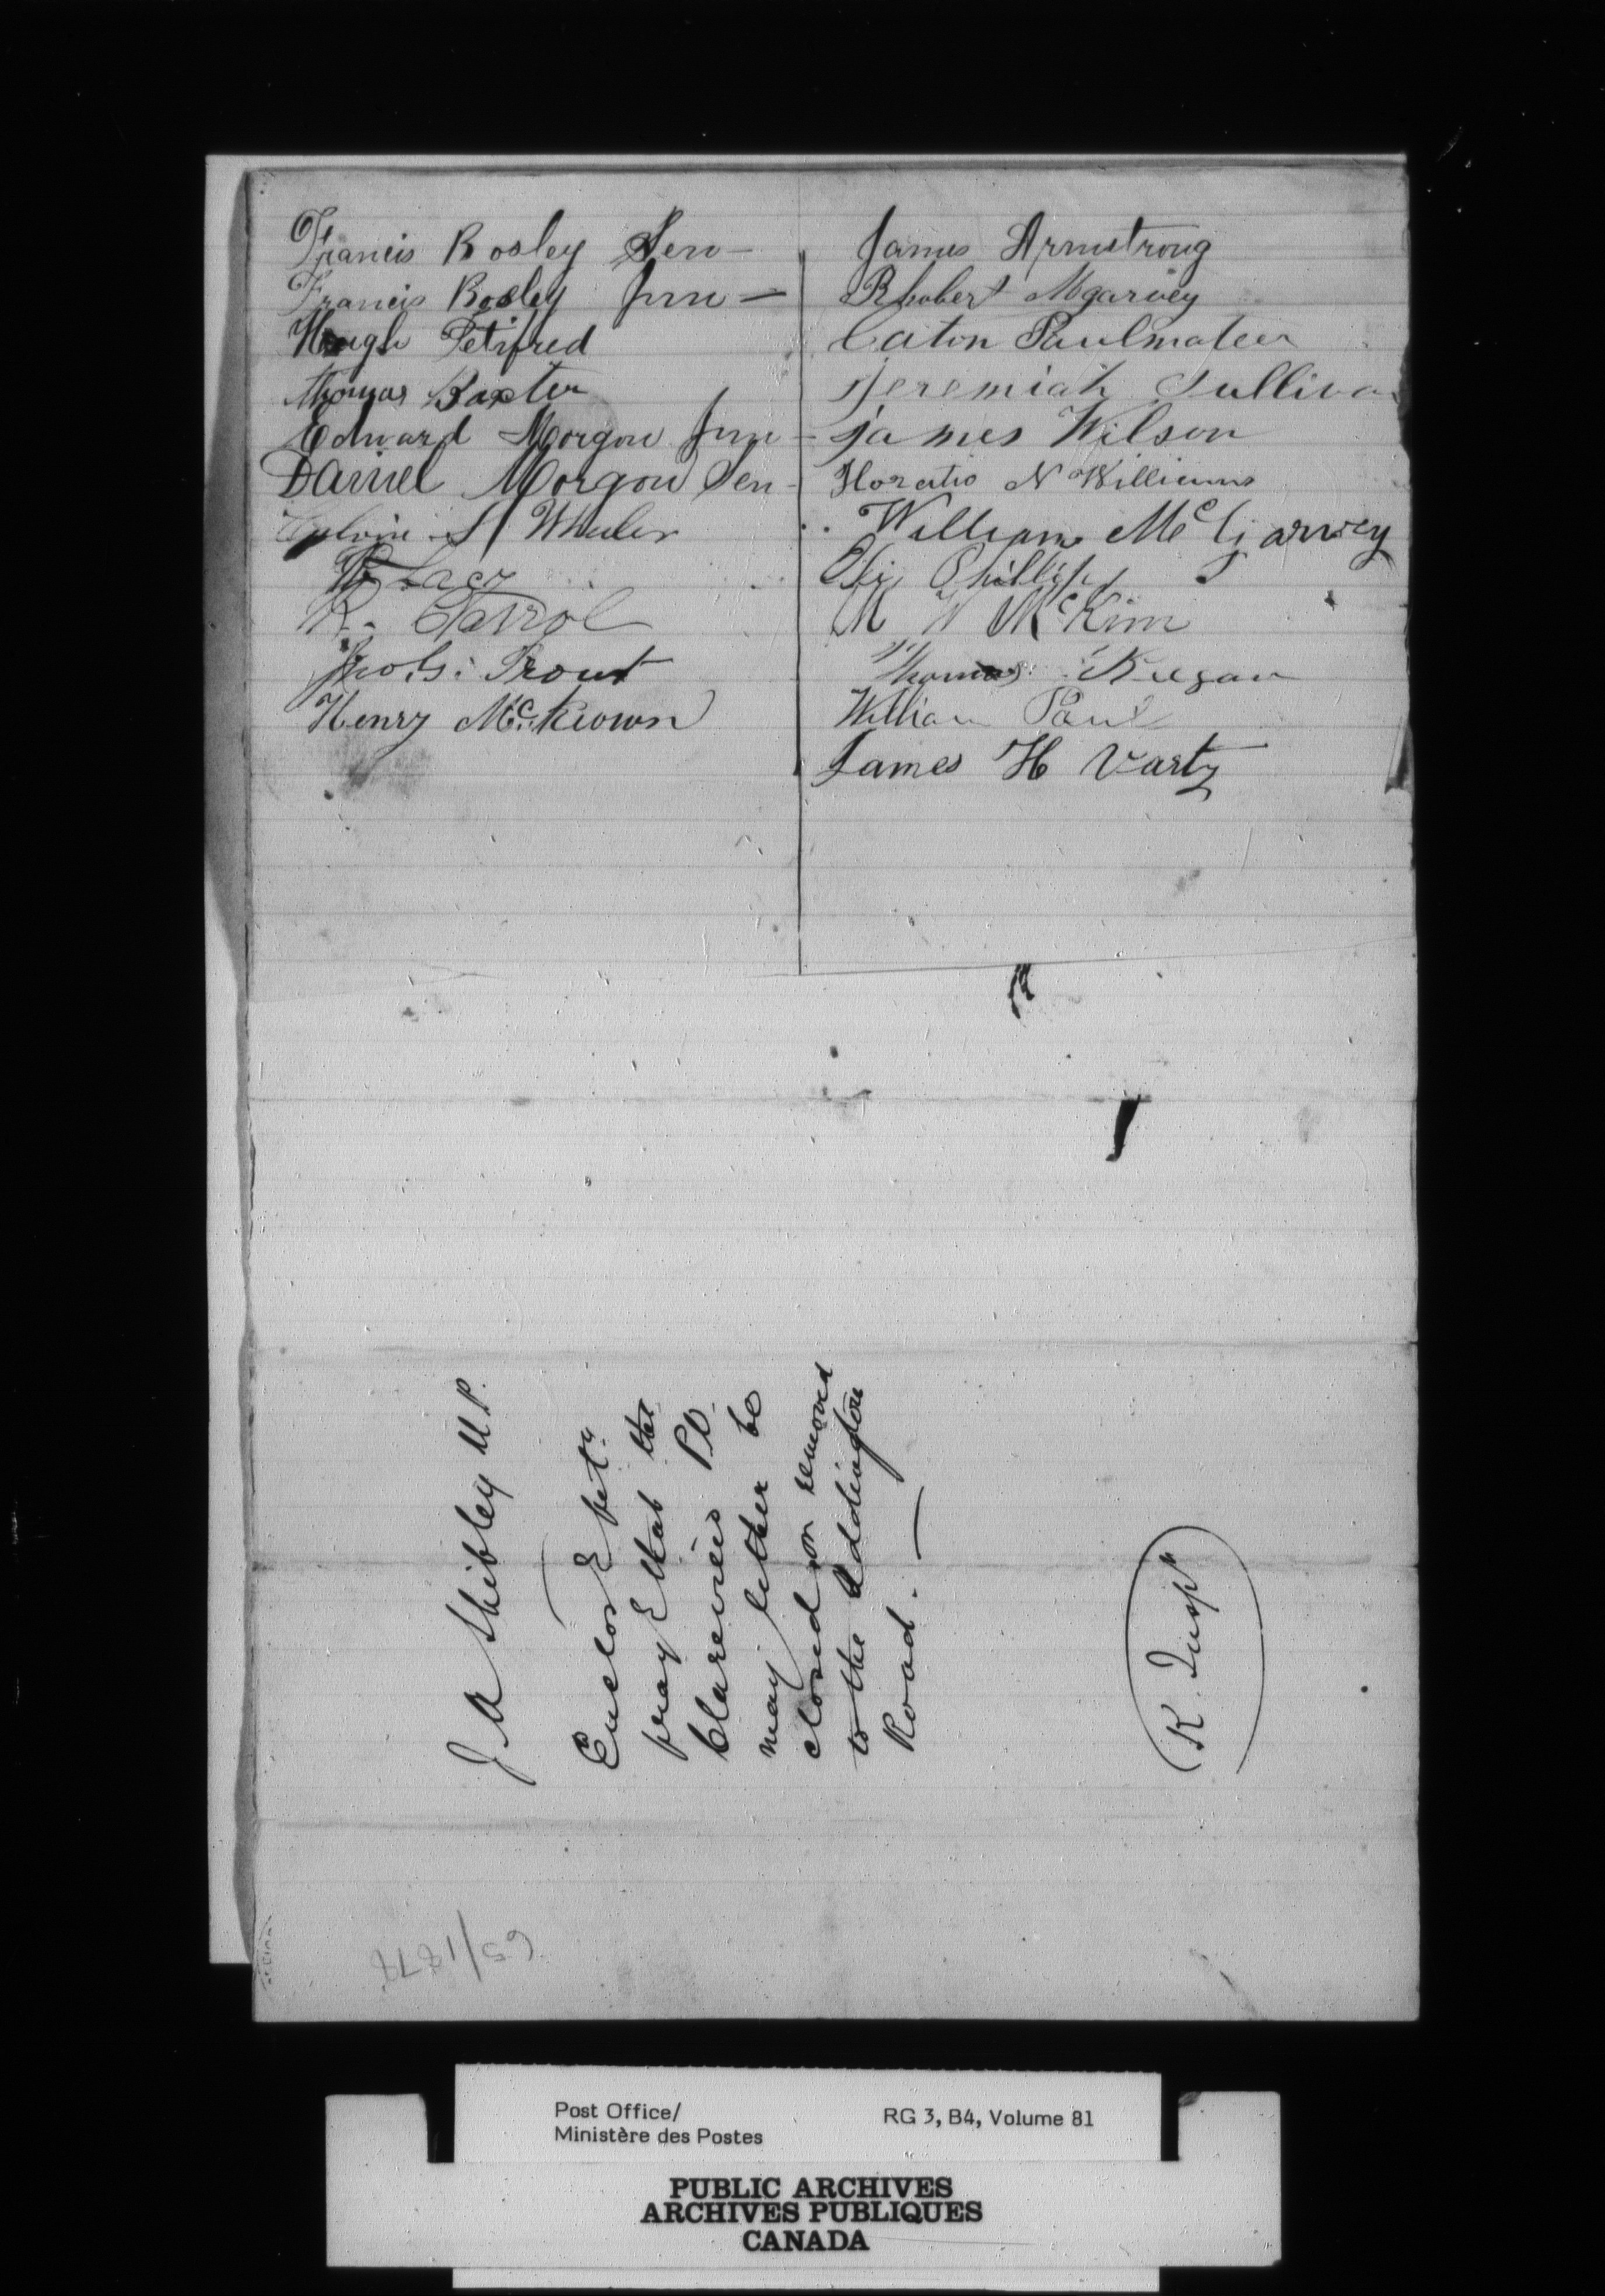 Francis Bosley Sen –
Francis Bosley Jun –
Hough Petifred
Thomas Baxter
Edward Morgon Jun –
Daniel Morgon Sen –
Calvin Wheeler
Lacy
R. Carrol
Jno. G. Trout
Henry Mc.Keown
James Armstrong
Rhobert Mgarvey
Caton Paulmateer
Jeremiah Sulliva
James Wilson
Horatio N Williams
William Mc Garvey
Phillips
M N McKim
Thomas Keegan
William Paul
James H Varty
J A Shibley M.P.
Enclos petn.
pray that the
Clareview P.O.
may either be
closed or removed
to the Addington
Road. —
K. Insp
65/1878
Post Office/
Ministère des Postes
RG 3, B4, Volume 81
PUBLIC ARCHIVES
ARCHIVES PUBLIQUES
CANADA